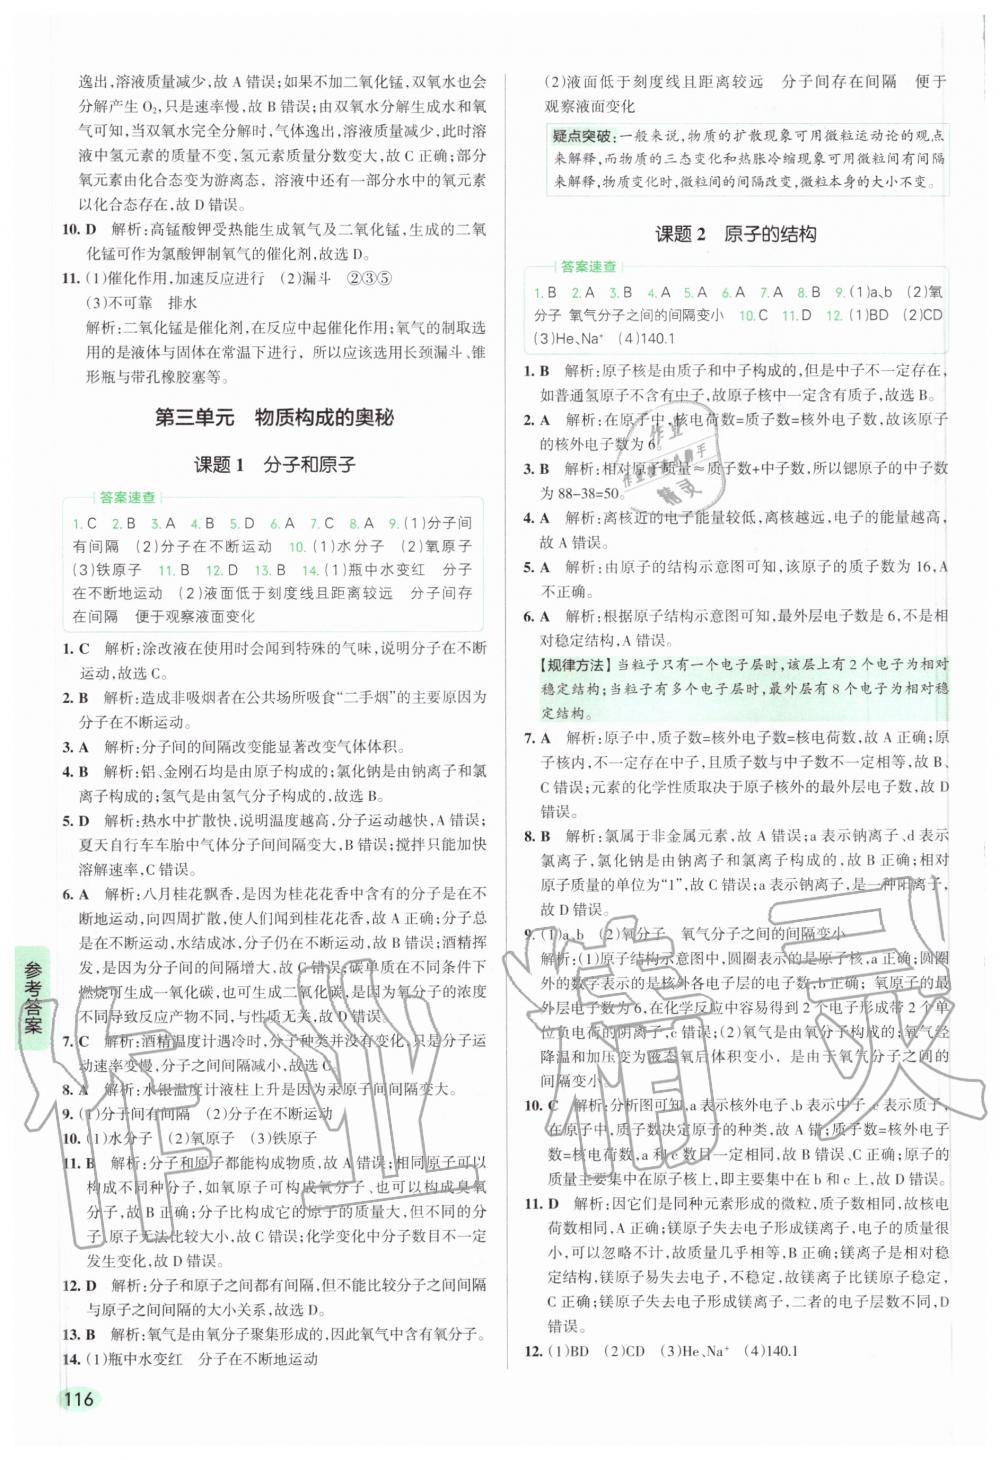 逸出,溶液质量减少,故 A 错误;如果不加二氧化锰,双氧水也会
分解产生 O₂,只是速率慢,故 B 错误;由双氧水分解生成水和氧
气可知,当双氧水完全分解时,气体逸出,溶液质量减少,此时溶
液中氢元素的质量不变,氢元素质量分数变大,故 C 正确;部分
氧元素由化合态变为游离态, 溶液中还有一部分水中的氧元素
以化合态存在,故 D 错误。
10. D 解析:高锰酸钾受热能生成氧气及二氧化锰,生成的二氧
化锰可作为氯酸钾制氧气的催化剂,故选 D。
11. (1)催化作用,加速反应进行 (2)漏斗 ②③⑤
(3)不可靠 排水
解析:二氧化锰是催化剂,在反应中起催化作用;氧气的制取选
用的是液体与固体在常温下进行, 所以应该选用长颈漏斗、锥
形瓶与带孔橡胶塞等。
第三单元 物质构成的奥秘
课题 1 分子和原子
答案速查
1. C 2. B 3. A 4. B 5. D 6. A 7. C 8. A 9. (1)分子间
有间隔 (2)分子在不断运动 10. (1)水分子 (2)氧原子
(3)铁原子 11. B 12. D 13. B 14. (1)瓶中水变红 分子
在不断地运动 (2)液面低于刻度线且距离较远 分子间存
在间隔 便于观察液面变化
1. C 解析:涂改液在使用时会闻到特殊的气味,说明分子在不断
运动,故选 C。
2. B 解析:造成非吸烟者在公共场所吸食“二手烟”的主要原因为
分子在不断运动。
3. A 解析:分子间的间隔改变能显著改变气体体积。
4. B 解析:铝、金刚石均是由原子构成的;氯化钠是由钠离子和氯
离子构成的;氢气是由氢气分子构成的,故选 B。
5. D 解析:热水中扩散快,说明温度越高,分子运动越快,A 错误;
夏天自行车车胎中气体分子间间隔变大,B 错误;搅拌只能加快
溶解速率,C 错误。
6. A 解析:八月桂花飘香,是因为桂花花香中含有的分子在不
断地运动,向四周扩散,使人们闻到桂花花香,故 A 正确;分子总
是在不断运动,水结成冰,分子仍在不断运动,故 B 错误;酒精挥
发,是因为分子间的间隔增大,故 C 错误;碳单质在不同条件下
燃烧可生成一氧化碳,也可生成二氧化碳,是因为氧气的浓度
不同导致反应产物不同,与性质无关,故 D 错误。
7. C 解析:酒精温度计遇冷时,分子种类并没有变化,只是分子运
动速率变慢,分子之间间隔减小,故选 C。
8. A 解析:水银温度计液柱上升是因为汞原子间间隔变大。
9. (1)分子间有间隔 (2)分子在不断运动
10. (1)水分子 (2)氧原子 (3)铁原子
11. B 解析:分子和原子都能构成物质,故 A 错误;相同原子可以
构成不同种分子,如氧原子可以构成氧分子,也可以构成臭氧
分子,故 B 正确;分子比构成它的原子大,但是不同种类的分
子、原子无法比较大小,故 C 错误;化学变化中分子数目不一定
发生变化,故 D 错误。
12. D 解析:分子和原子之间都有间隔,但不能比较分子之间间隔
与原子之间间隔的大小关系,故选 D。
13. B 解析:氧气是由氧分子聚集形成的,因此氧气中含有氧分子。
14. (1)瓶中水变红 分子在不断地运动
116
参考答案
(2)液面低于刻度线且距离较远 分子间存在间隔 便于
观察液面变化
疑点突破:一般来说,物质的扩散现象可用微粒运动论的观点
来解释,而物质的三态变化和热胀冷缩现象可用微粒间有间隔
来解释,物质变化时,微粒间的间隔改变,微粒本身的大小不变。
课题 2 原子的结构
答案速查
1. B 2. A 3. B 4. A 5. A 6. A 7. A 8. B 9. (1)a、b (2)氧
分子 氧气分子之间的间隔变小 10. C 11. D 12. (1)BD (2)CD
(3)He、Na⁺ (4)140.1
1. B 解析:原子核是由质子和中子构成的,但是中子不一定存在,
如普通氢原子不含有中子,故原子核中一定有质子,故选 B。
2. A 解析:在原子中,核电荷数=质子数=核外电子数,故该原子
的核外电子数为 6。
3. B 解析:相对原子质量≈质子数+中子数,所以锶原子的中子数
为 88-38=50。
4. A 解析:离核近的电子能量较低,离核越远,电子的能量越高,
故 A 错误。
5. A 解析:由原子的结构示意图可知,该原子的质子数为 16,A
不正确。
6. A 解析:根据原子结构示意图可知,最外层电子数是 6,不是相
对稳定结构,A 错误。
【规律方法】当粒子只有一个电子层时,该层上有 2 个电子为相对
稳定结构;当粒子有多个电子层时,最外层有 8 个电子为相对稳
定结构。
7. A 解析:原子中,质子数=核外电子数=核电荷数,故 A 正确;原
子核内,不一定存在中子,且质子数与中子数不一定相等,故 B、
C 错误;元素的化学性质取决于原子核外的最外层电子数,故 D
错误。
8. B 解析:氯属于非金属元素,故 A 错误;a 表示钠离子、d 表示
氯离子,氯化钠是由钠离子和氯离子构成的,故 B 正确;相对
原子质量的单位为“1”,故 C 错误;a 表示钠离子,是一种阳离子,
故 D 错误。
9. (1)a、b (2)氧分子 氧气分子之间的间隔变小
解析:(1)原子结构示意图中,圆圈表示的是原子核,a 正确;圆圈
外的数字表示的是核外各电子层的电子数,b 正确;氧原子的最
外层电子数为 6,在化学反应中容易得到 2 个电子形成带 2 个单
位负电荷的阴离子,c 错误;(2)氧气是由氧分子构成的;氧气经
降温和加压变为液态氧后体积变小,是由于氧气分子之间的
间隔变小。
10. C 解析:分析图可知,a 表示核外电子、b 表示中子、c 表示质子,
在原子中,质子数决定原子的种类,故 A 错误;质子数=核外电子
数=核电荷数,a 和 c 数目一定相同,故 B 错误,C 正确;原子的质
量主要集中在原子核上,即主要集中在 b 和 c 上,故 D 错误。
11. D 解析:因它们是同种元素形成的微粒,质子数相同,故核电
荷数相同,A 正确;镁原子失去电子形成镁离子,电子的质量很
小,可以忽略不计,故质量几乎相等,B 正确;镁离子是相对稳
定结构,镁原子易失去电子,不稳定,故镁离子比镁原子稳定,
C 正确;镁原子失去电子形成镁离子,二者的电子层数不同,D
错误。
12. (1)BD (2)CD (3)He、Na⁺ (4)140.1
作业精灵